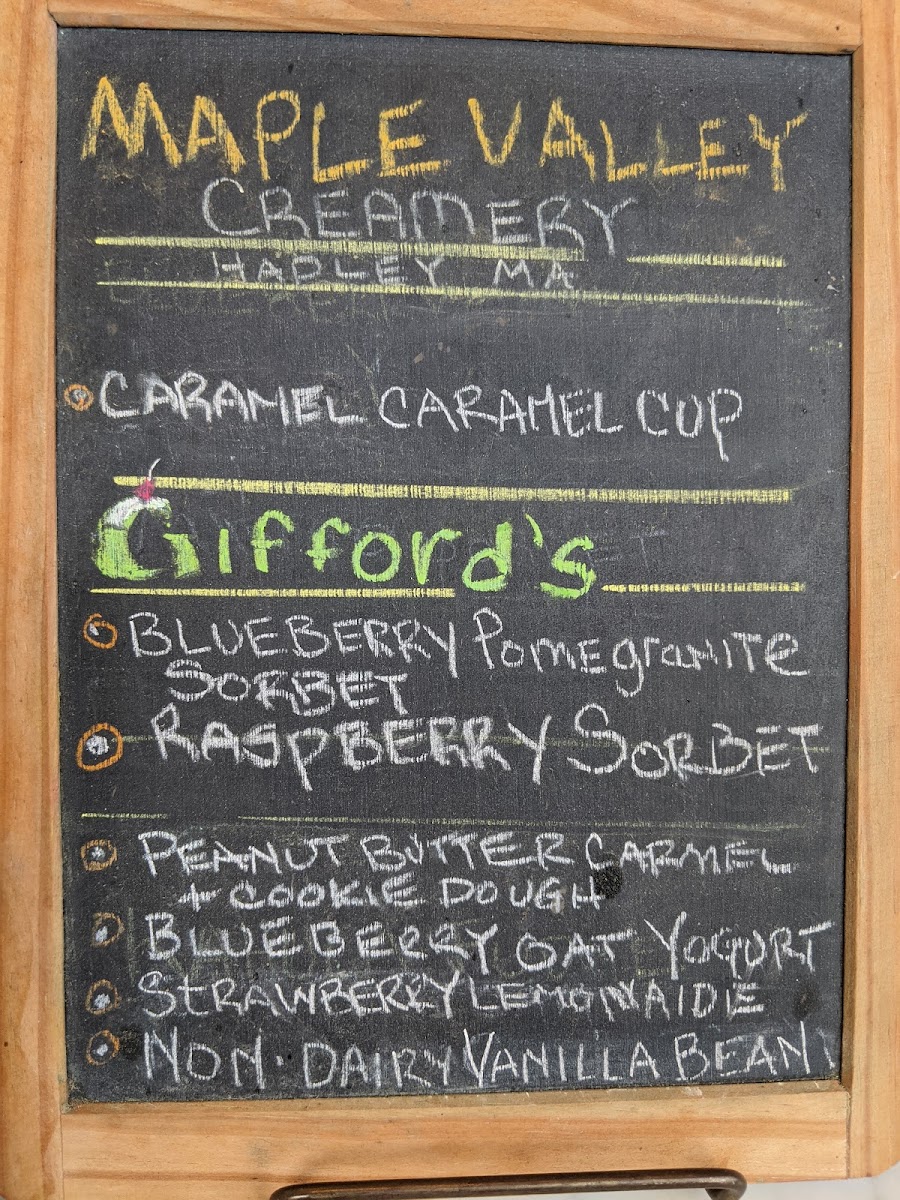 MAPLE VALLEY
CREAMERY
HADLEY MA
CARAMEL CARAMEL CUP
Gifford's
BLUEBERRY PomegraNITe
SORBET
RASPBERRY SORBET
PEANUT BUTTER CARMEL
+ COOKIE DOUGH
BLUEBERRY OAT YOGURT
STRAWBERRY LEMONAIDE
NON-DAIRY VANILLA BEAN